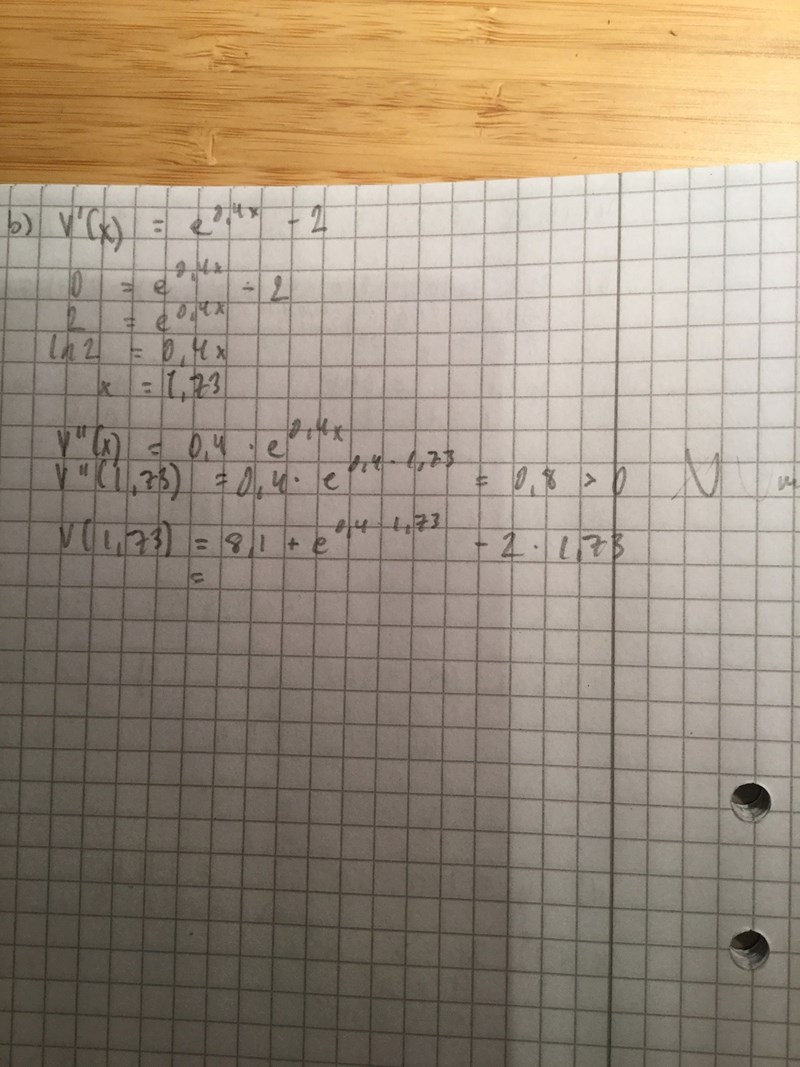 b) V'(x) = e^0,4x - 2
0 = e^0,4x - 2
2 = e^0,4x
ln 2 = 0,4x
x = 1,73
V''(x) = 0,4 · e^0,4x
V''(1,73) = 0,4 · e^0,4 · 1,73 = 0,8 > 0
V(1,73) = 8,1 + e^0,4 · 1,73 - 2 · 1,73
=